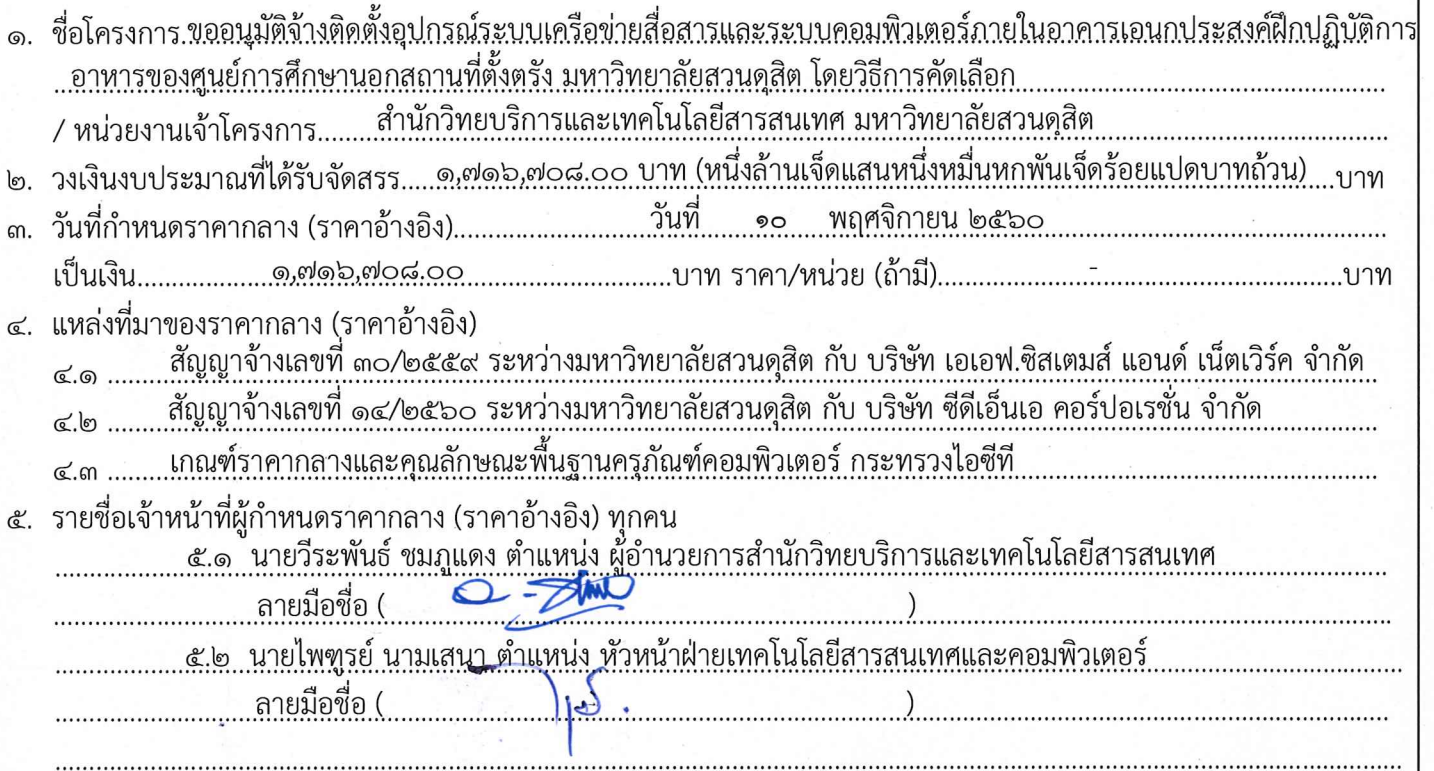 ๑. ชื่อโครงการ.ขออนุมัติจ้างติดตั้งอุปกรณ์ระบบเครือข่ายสื่อสารและระบบคอมพิวเตอร์ภายในอาคารเอนกประสงค์ฝึกปฏิบัติการ
อาหารของศูนย์การศึกษานอกสถานที่ตั้งตรัง มหาวิทยาลัยสวนดุสิต โดยวิธีการคัดเลือก
/ หน่วยงานเจ้าโครงการ........สำนักวิทยบริการและเทคโนโลยีสารสนเทศ มหาวิทยาลัยสวนดุสิต
๒. วงเงินงบประมาณที่ได้รับจัดสรร....๑,๗๑๖,๗๐๘.๐๐ บาท (หนึ่งล้านเจ็ดแสนหนึ่งหมื่นหกพันเจ็ดร้อยแปดบาทถ้วน)....บาท
๓. วันที่กำหนดราคากลาง (ราคาอ้างอิง)........วันที่ ๑๐ พฤศจิกายน ๒๕๖๐
เป็นเงิน........๑,๗๑๖,๗๐๘.๐๐........บาท ราคา/หน่วย (ถ้ามี)........-........บาท
๔. แหล่งที่มาของราคากลาง (ราคาอ้างอิง)
๔.๑ ........สัญญาจ้างเลขที่ ๓๐/๒๕๕๙ ระหว่างมหาวิทยาลัยสวนดุสิต กับ บริษัท เอเอฟ.ซิสเตมส์ แอนด์ เน็ตเวิร์ค จำกัด
๔.๒ ........สัญญาจ้างเลขที่ ๑๔/๒๕๖๐ ระหว่างมหาวิทยาลัยสวนดุสิต กับ บริษัท ซีดีเอ็นเอ คอร์ปอเรชั่น จำกัด
๔.๓ ........เกณฑ์ราคากลางและคุณลักษณะพื้นฐานครุภัณฑ์คอมพิวเตอร์ กระทรวงไอซีที
๕. รายชื่อเจ้าหน้าที่ผู้กำหนดราคากลาง (ราคาอ้างอิง) ทุกคน
๕.๑ นายวีระพันธ์ ชมภูแดง ตำแหน่ง ผู้อำนวยการสำนักวิทยบริการและเทคโนโลยีสารสนเทศ
ลายมือชื่อ ( )
๕.๒ นายไพฑูรย์ นามเสนา ตำแหน่ง หัวหน้าฝ่ายเทคโนโลยีสารสนเทศและคอมพิวเตอร์
ลายมือชื่อ ( )